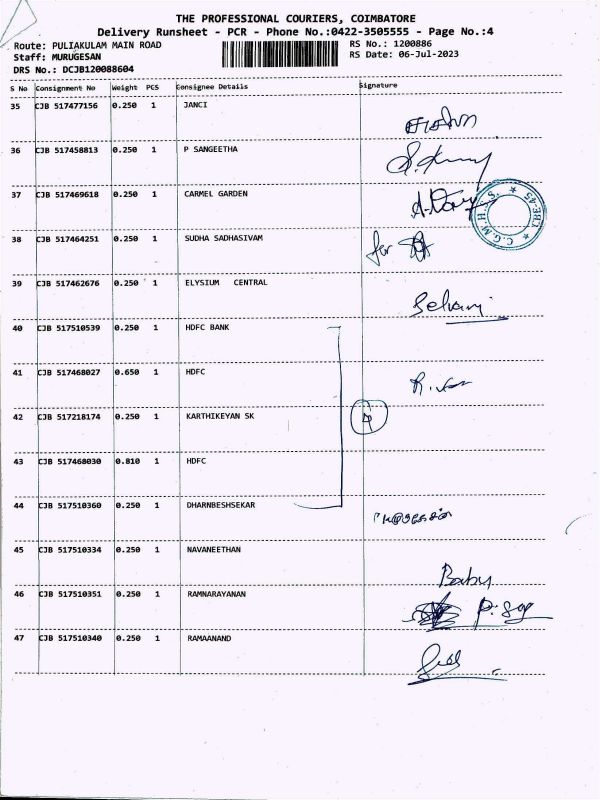 THE PROFESSIONAL COURIERS, COIMBATORE
Delivery Runsheet - PCR - Phone No.:0422-3505555 - Page No.:4
Route: PULIAKULAM MAIN ROAD RS No.: 1200886
Staff: MURUGESAN RS Date: 06-Jul-2023
DRS No.: DCJB120088604
S No Consignment No Weight PCS Consignee Details Signature
35 CJB 517477156 0.250 1 JANCI
36 CJB 517458813 0.250 1 P SANGEETHA
37 CJB 517469618 0.250 1 CARMEL GARDEN
C.G.M.H.S.S.
38 CJB 517464251 0.250 1 SUDHA SADHASIVAM for
39 CJB 517462676 0.250 1 ELYSIUM CENTRAL
40 CJB 517510539 0.250 1 HDFC BANK
41 CJB 517468027 0.650 1 HDFC
42 CJB 517218174 0.250 1 KARTHIKEYAN SK
43 CJB 517468030 0.810 1 HDFC
44 CJB 517510360 0.250 1 DHARNBESHSEKAR
45 CJB 517510334 0.250 1 NAVANEETHAN Baby
46 CJB 517510351 0.250 1 RAMNARAYANAN
47 CJB 517510340 0.250 1 RAMAANAND